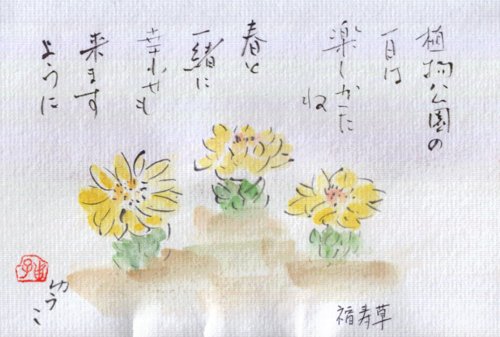 植物公園の
一日は
楽しかた
ね
春と
一緒に
幸せも
来ます
ように
ゆうこ
福寿草